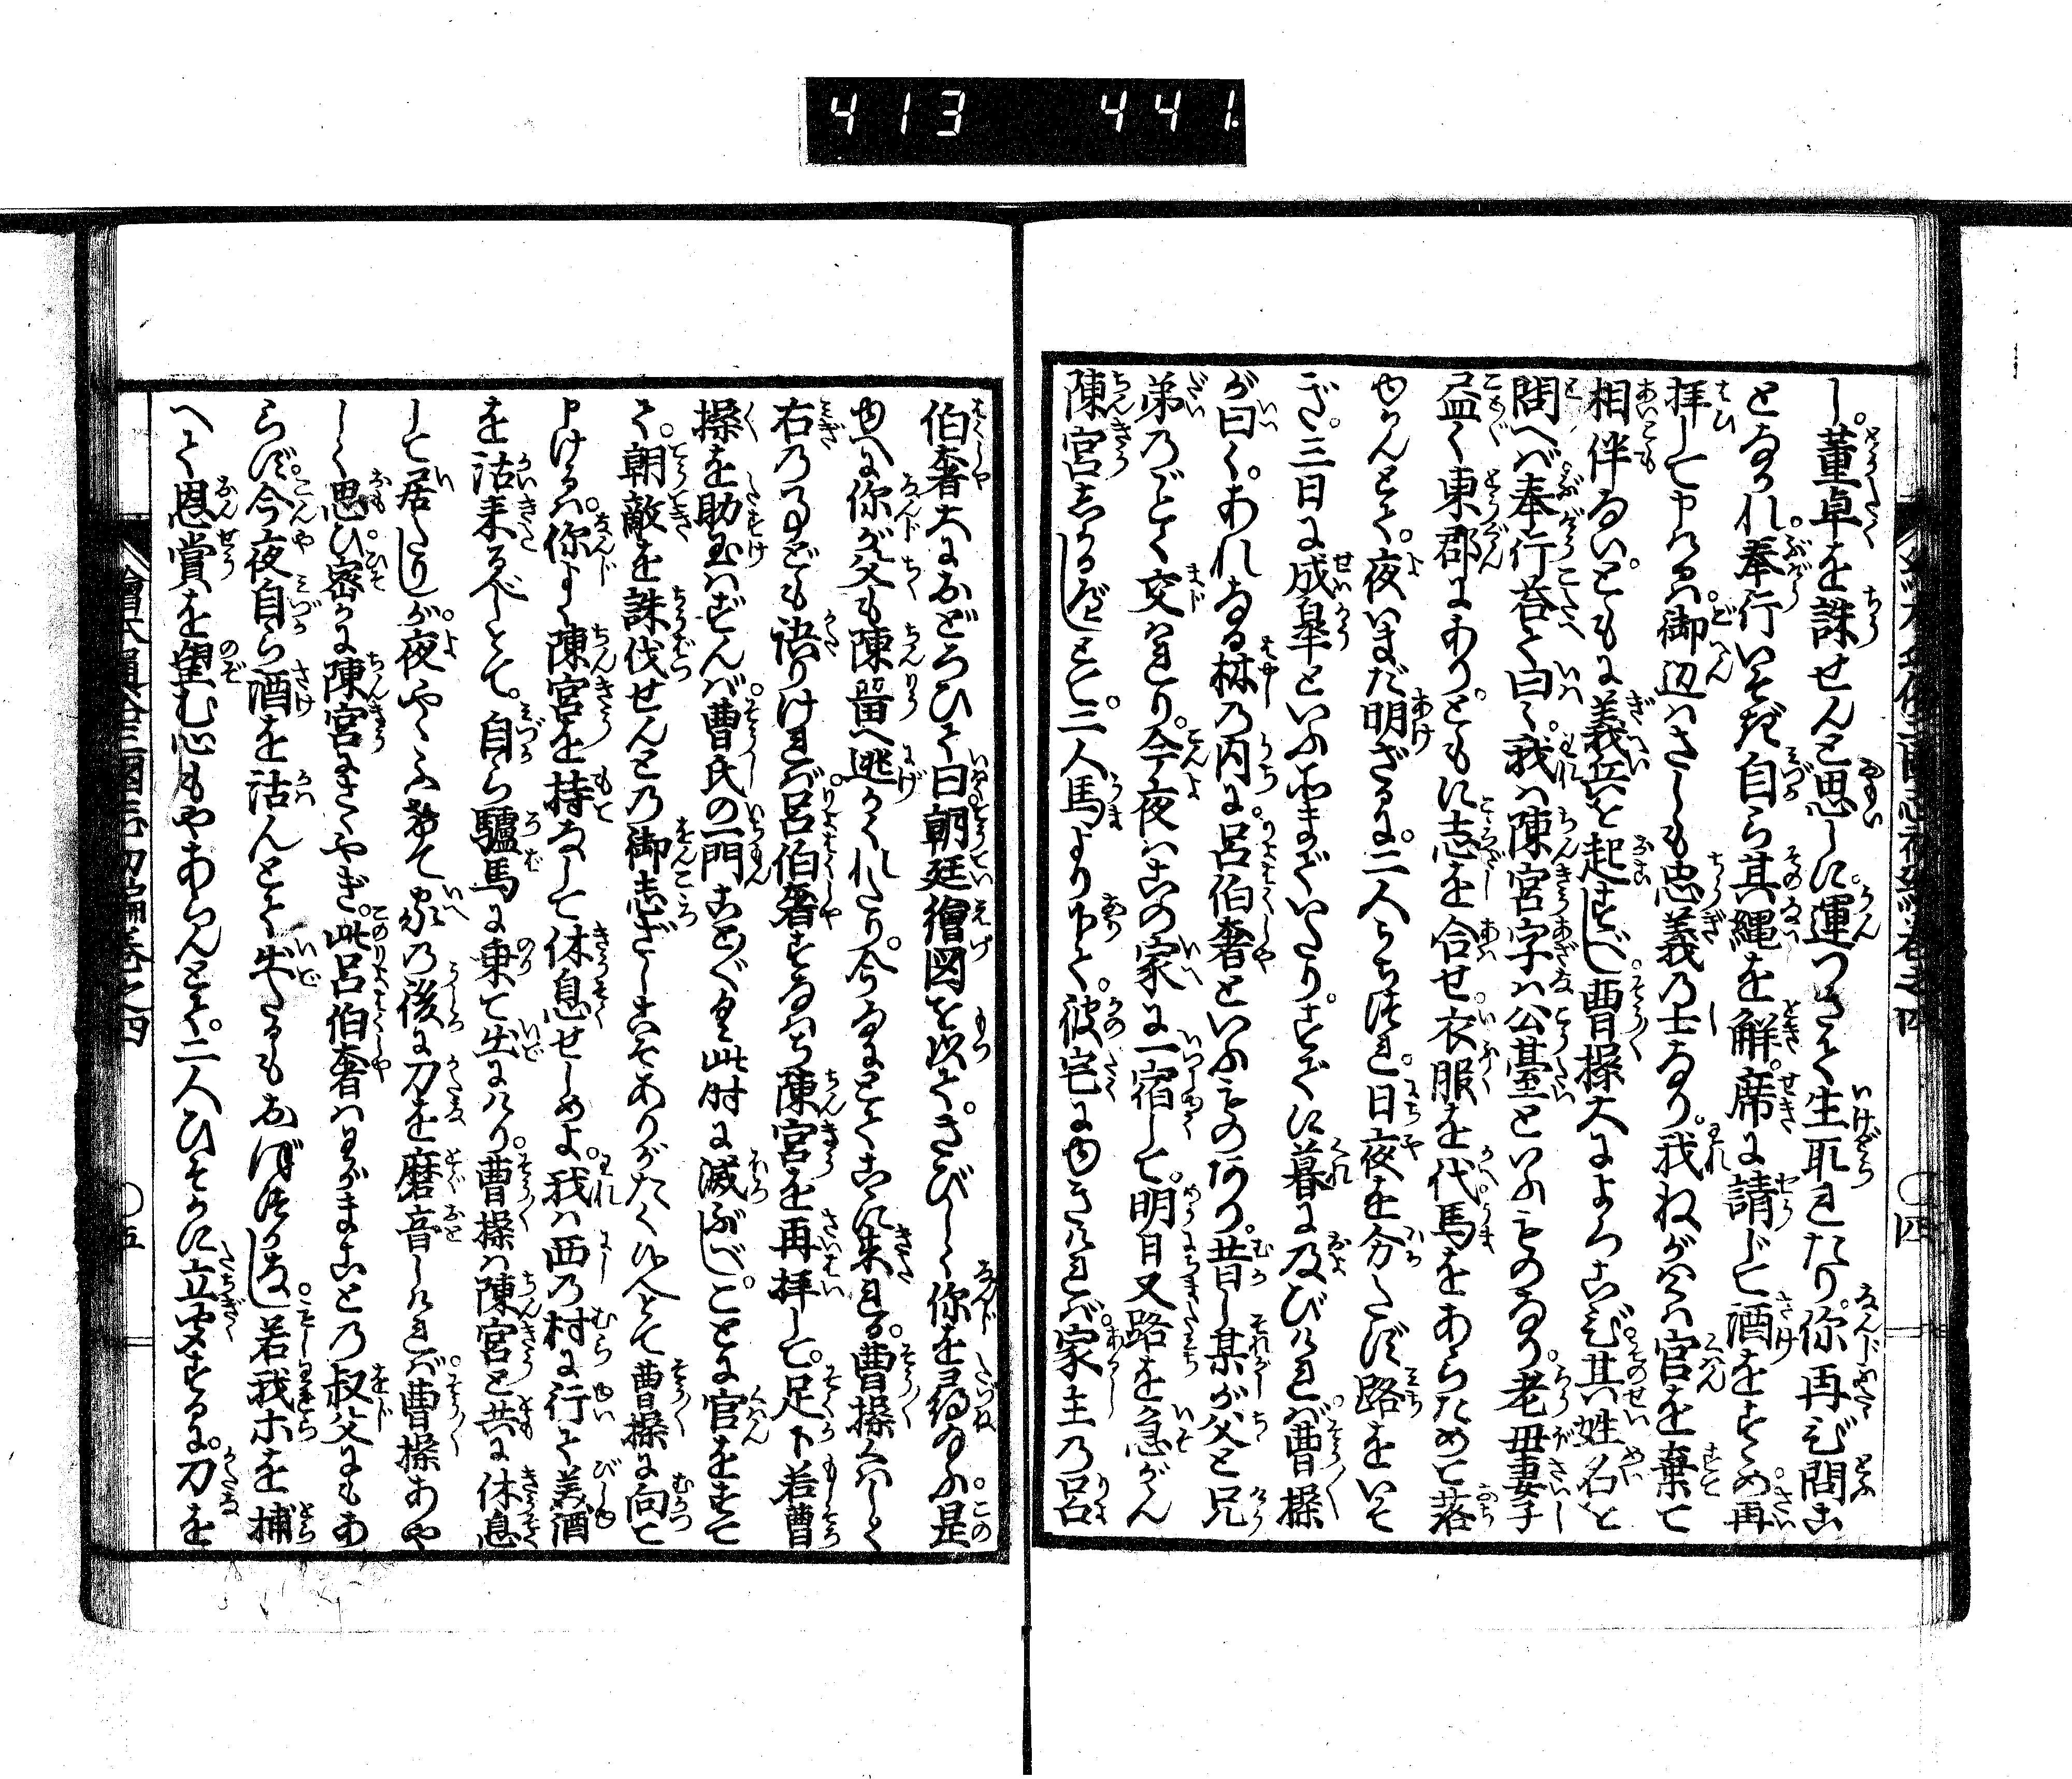 413 441
し。董卓を誅せんと思しに。運つきて生取れたり。你再び問こ
となかれ。奉行いそぎ自ら其縄を解。席に請じて酒をすゝめ。再
拝して申けるは。御辺はさしも忠義の士なり。我ねがはくは官を棄て
相伴ない。ともに義兵を起すべし。曹操大によろこび。其姓名を
問へば。奉行答て曰く。我は陳宮字は公臺といふものなり。老母妻子
盡く東郡にあり。ともに志を合せ。衣服を代。馬をあらためて落
ゆかんとて。夜いまだ明ざるに。二人うち連れ。日夜を分たず路をいそ
ぎ。三日に成皐といふ所までいたり。すでに暮に及びければ。曹操
が曰く。あれなる林の内に。呂伯奢といふものあり。昔し某が父と兄
弟のごとく交はれり。今夜はこの家に一宿して。明日又路を急がん
陳宮しかるべしとて。二人馬より下て。彼宅にゆきければ。家主の呂
伯奢大におどろひて曰朝廷繪図を以て。きびしく你を尋ねたまふ。是
ゆへに你が父も陳留へ逃かくれたり。今なにとてこゝに来れる。曹操くはしく
右のことども語りければ。呂伯奢すなはち陳宮を再拝して。足下若曹
操を助玉はずんば。曹氏の一門ことごとく此时に滅ぶべし。ことに官をすて
て。朝敵を誅伐せんとの御志ざしこそありがたく候へとて曹操に向て
申けるは。你よく陳宮を持なして休息せしめよ。我は西の村に行て美酒
を沽来るべしとて。自ら驢馬に乗て出にけり。曹操は陳宮と共に休息
して居たりしが。夜やゝふけて家の後に刀を磨音しければ。曹操あや
しく思ひ。密かに陳宮にさゝやき。此呂伯奢はわがまことの叔父にもあ
らず。今夜自ら酒を沽んとて出たるもおぼつかなし。若我ホを捕
へて恩賞を望む心もやあらんとて。二人ひそかに立聞するに。刀を
繪本通俗三國志初編巻之四
〇四
〇五